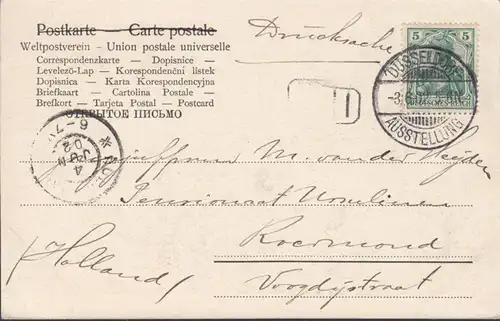 Postkarte — Carte postale
Weltpostverein - Union postale universelle
Correspondenzkarte — Dopisnice —
Levelező-Lap — Korespondenční lístek
Dopisnica — Karta Korespondencyjna
Briefkaart — Cartolina Postale —
Brefkort — Tarjeta Postal — Postcard
ОТКРЫТОЕ ПИСЬМО
Drucksache
5 5
DÜSSELDORF
AUSSTELLUNG
6-7
4 JUN 02
Mejuffrouw M. van der Heyden
Pensionaat Ursulinen
Roermond
(Holland)
Voogdystraat